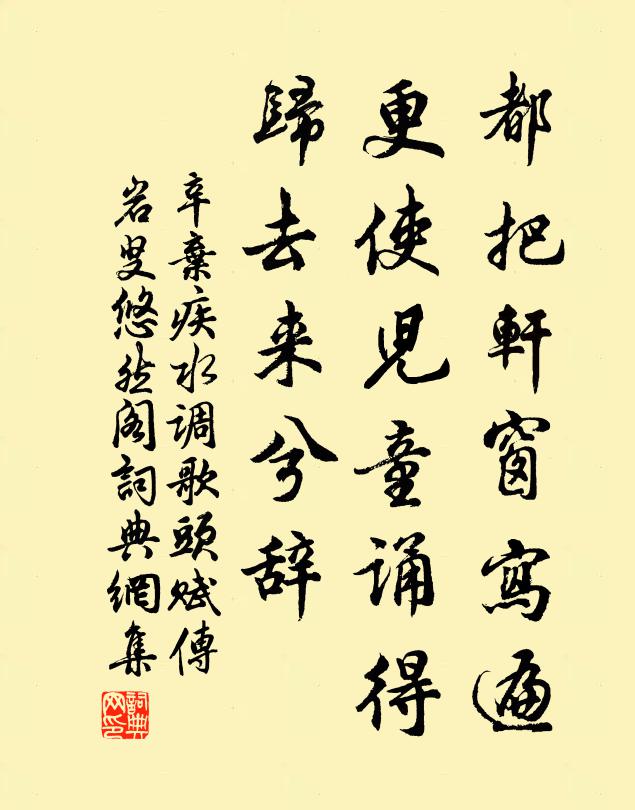 都把軒窗寫遍
更使児童誦得
歸去来兮辞
辛棄疾水调歌頭賦傳
岩叟悠然阁詞典網集
詞典网印